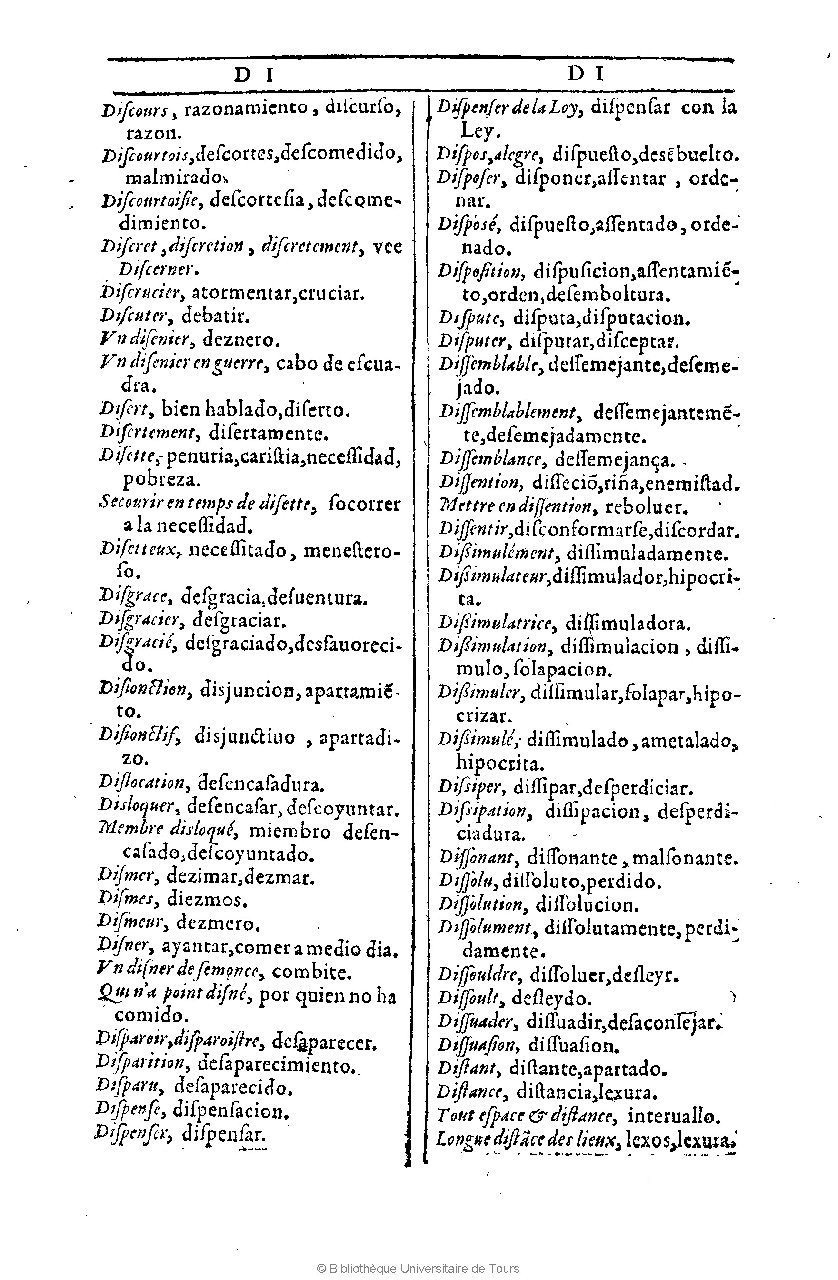 D I
Diſcours, razonamiento, diſcurſo,
razon.
Diſcourtois, deſcortes, deſcomedido,
malmirado.
Diſcourtoiſie, deſcorteſia, deſcome-
dimiento.
Diſcret, diſcretion, diſcretement, vee
Diſcerner.
Diſcrucier, atormentar, cruciar.
Diſcuter, debatir.
Vn diſenier, deznero.
Vn diſenier en guerre, cabo de eſcua-
dra.
Diſert, bien hablado, diſerto.
Diſertement, diſertamente.
Diſette, penuria, cariſtia, neceſſidad,
pobreza.
Secourir en temps de diſette, ſocorrer
a la neceſſidad.
Diſetteux, neceſſitado, meneſtero-
ſo.
Diſgrace, deſgracia, deſuentura.
Diſgracier, deſgraciar.
Diſgracié, deſgraciado, desfauoreci-
do.
Diſionction, disjuncion, apartamiẽ-
to.
Diſionctif, disjunctiuo, apartadi-
zo.
Diſlocation, deſencaſadura.
Disloquer, deſencaſar, deſcoyuntar.
Membre disloqué, miembro deſen-
caſado, deſcoyuntado.
Diſmer, dezimar, dezmar.
Diſmes, diezmos.
Diſmeur, dezmero.
Diſner, ayantar, comer a medio dia.
Vn diſner de ſemonce, combite.
Qui n'a point diſné, por quien no ha
comido.
Diſparoir, diſparoiſtre, deſaparecer.
Diſparition, deſaparecimiento.
Diſparu, deſaparecido.
Diſpenſe, diſpenſacion.
Diſpenſer, diſpenſar.
D I
Diſpenſer de la Loy, diſpenſar con la
Ley.
Diſpos, alegre, diſpueſto, desẽbuelto.
Diſpoſer, diſponer, aſſentar, orde-
nar.
Diſposé, diſpueſto, aſſentado, orde-
nado.
Diſpoſition, diſpuſicion, aſſentamiẽ-
to, orden, deſemboltura.
Diſpute, diſputa, diſputacion.
Diſputer, diſputar, diſceptar.
Diſſemblable, deſſemejante, deſeme-
jado.
Diſſemblablement, deſſemejantemẽ-
te, deſemejadamente.
Diſſemblance, deſſemejança.
Diſſention, diſſeciõ, riña, enemiſtad.
Mettre en diſſention, reboluer.
Diſſentir, diſconformarſe, diſcordar.
Dißimulément, diſſimuladamente.
Dißimulateur, diſſimulador, hipocri-
ta.
Dißimulatrice, diſſimuladora.
Dißimulation, diſſimulacion, diſſi-
mulo, ſolapacion.
Dißimuler, diſſimular, ſolapar, hipo-
crizar.
Dißimulé, diſſimulado, ametalado,
hipocrita.
Diſsiper, diſſipar, deſperdiciar.
Diſsipation, diſſipacion, deſperdi-
ciadura.
Diſſonant, diſſonante, malſonante.
Diſſolu, diſſoluto, perdido.
Diſſolution, diſſolucion.
Diſſolument, diſſolutamente, perdi-
damente.
Diſſouldre, diſſoluer, deſleyr.
Diſſoult, deſleydo.
Diſſuader, diſſuadir, deſaconſejar.
Diſſuaſion, diſſuaſion.
Diſtant, diſtante, apartado.
Diſtance, diſtancia, lexura.
Tout eſpace & diſtance, interuallo.
Longue diſtãce des lieux, lexos, lexura.
© Bibliothèque Universitaire de Tours